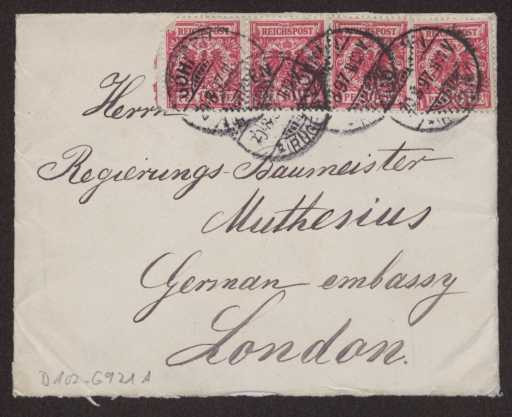 REICHSPOST REICHSPOST REICHSPOST REICHSPOST
Herrn
Regierungs-Baumeister
Muthesius
German embassy
London.
D102-6921A